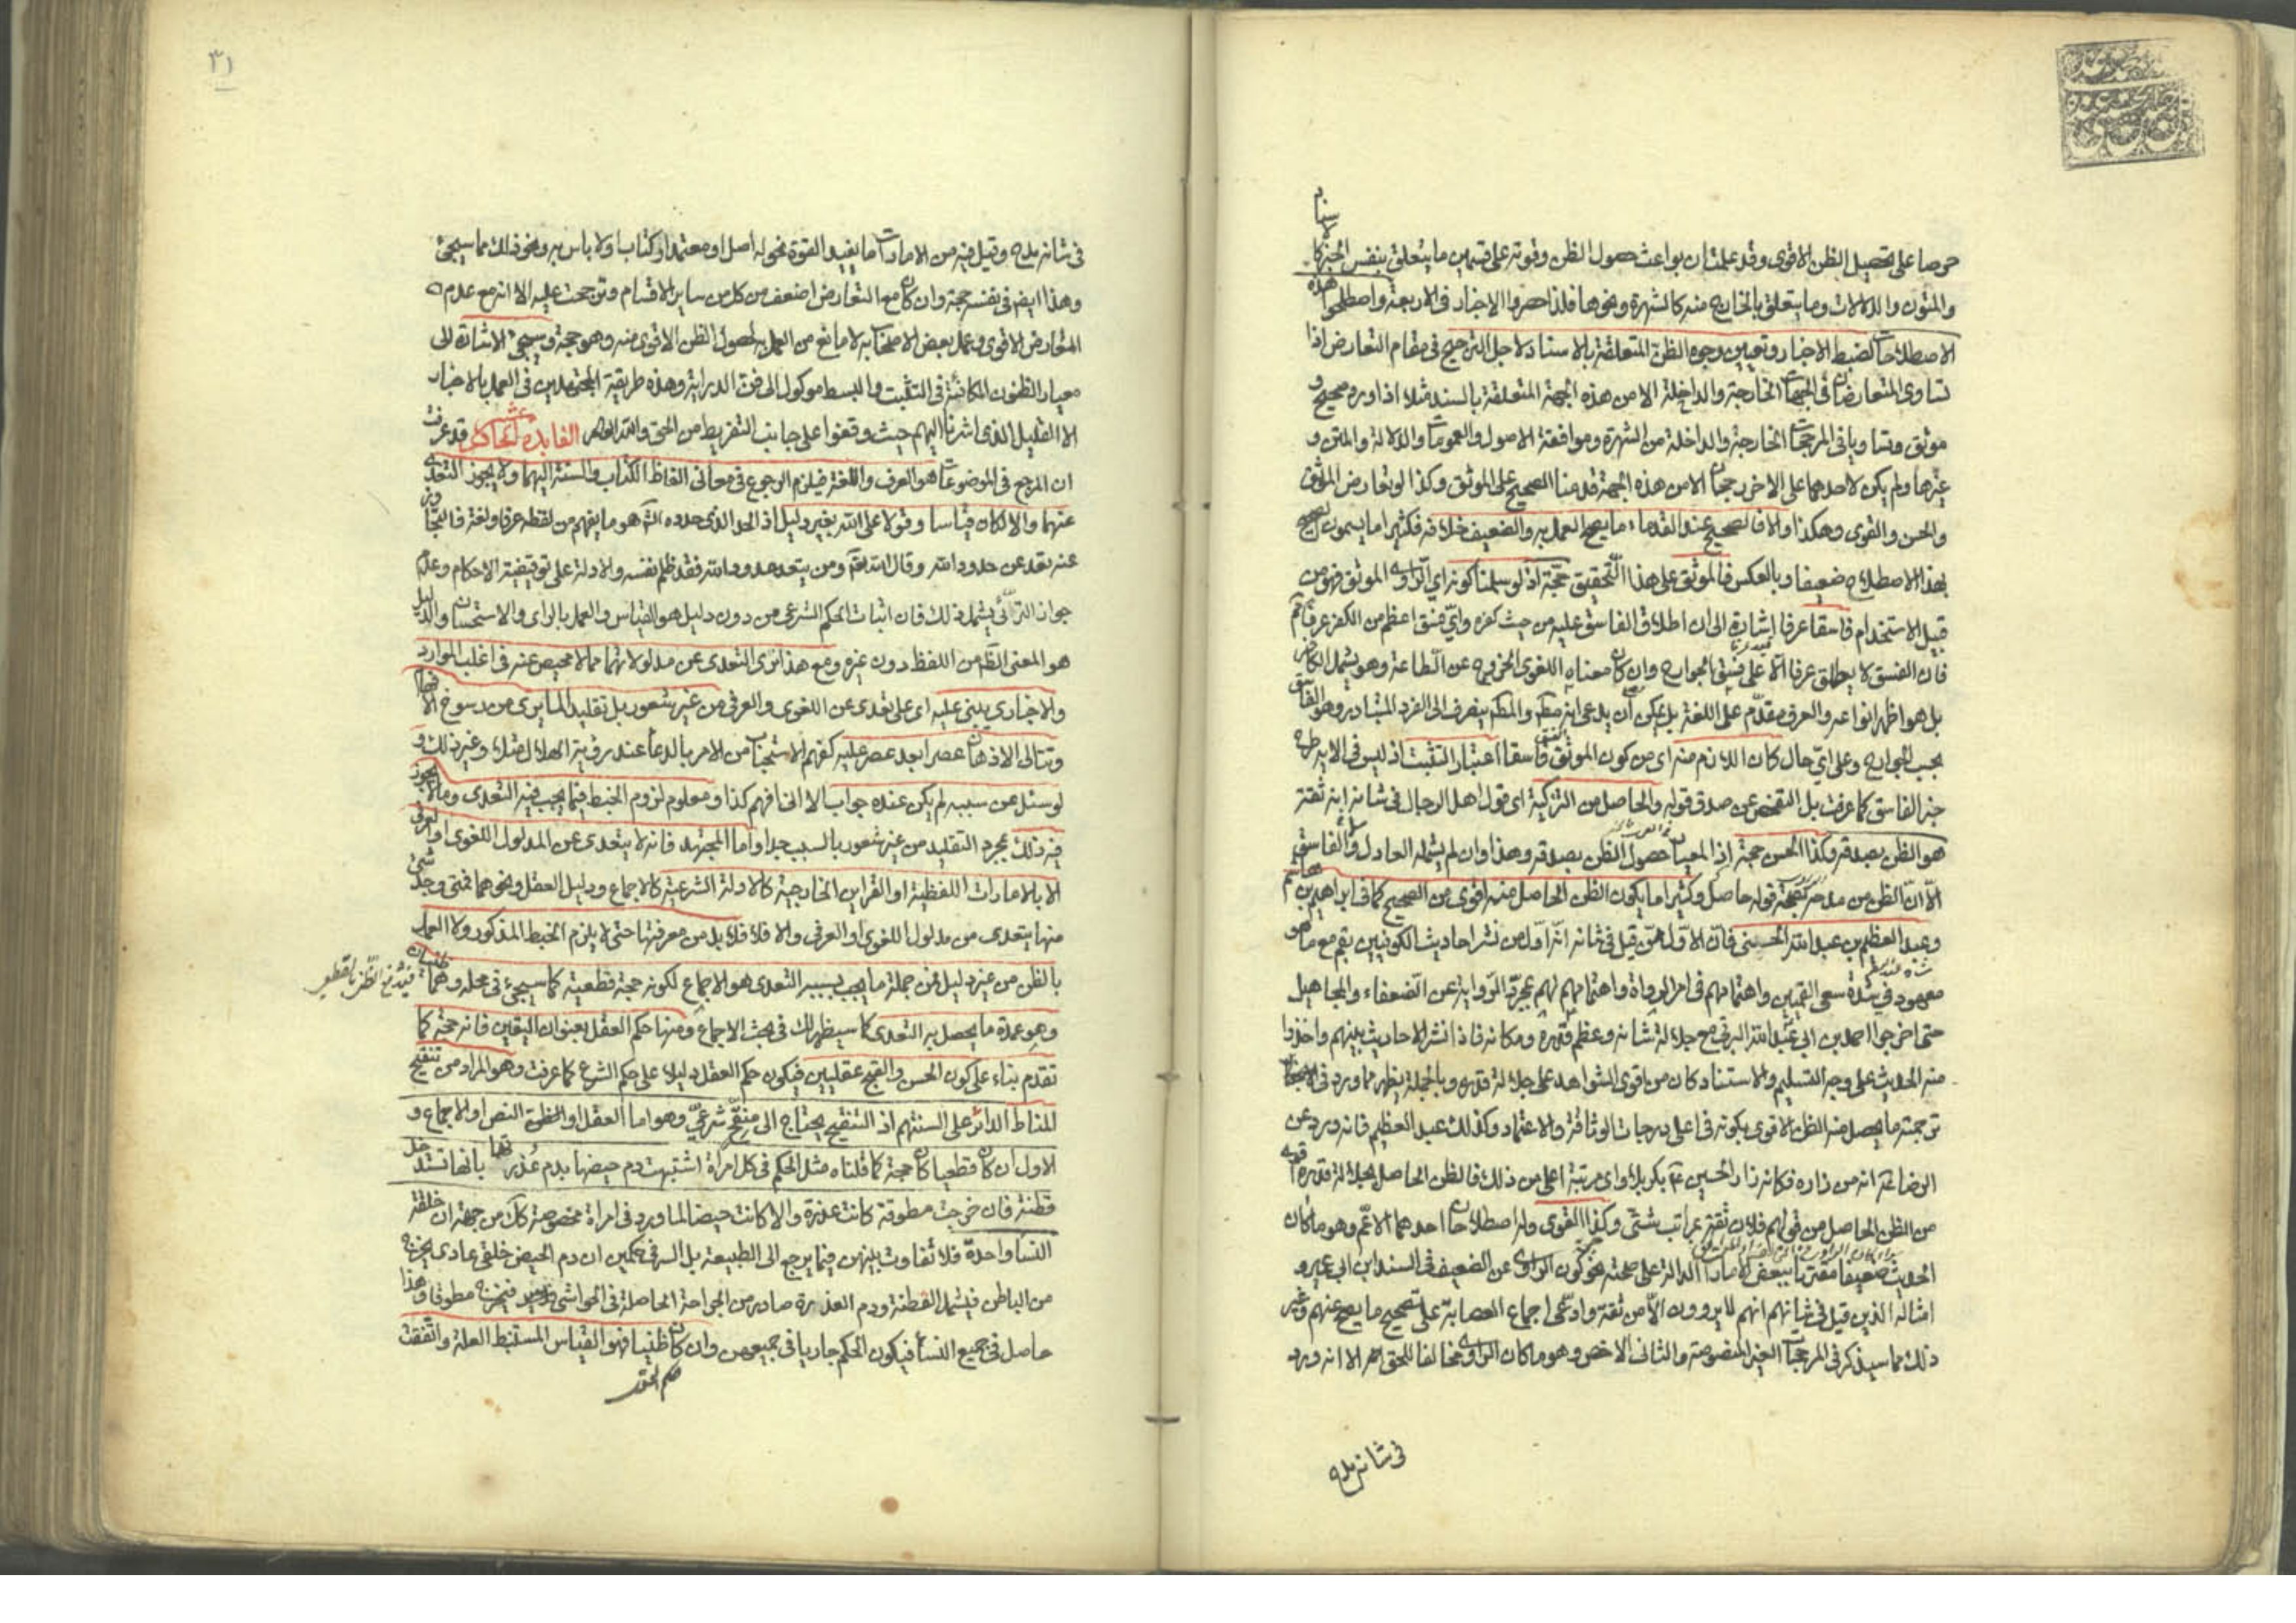 حرصا على تحصيل الظن الاقوى وقد علمت ان بواعث حصول الظن وقوته على قسمين ما يتعلق بنفس الخبر كالاسناد
والمتون والدلالات وما يتعلق بالخارج منه كالشهرة ونحوها فلذا حصروا الاخبار في الاربعة واصطلحوا هذه
الاصطلاحات لضبط الاخبار وتعيين وجوه الظن المتعلقة بالاسناد لاجل الترجيح في مقام التعارض اذا
تساوى المتعارضان في الجهات الخارجة والداخلة الا من هذه الجهة المتعلقة بالسند مثلا اذا ورد صحيح و
موثق وتساويا في المرجحات الخارجة والداخلة من الشهرة وموافقة الاصول والعمومات والدلالة والمتن و
غيرها ولم يكن لاحدهما على الاخر رجحان الا من هذه الجهة قدمنا الصحيح على الموثق وكذا لو تعارض الموثق
والحسن والقوى وهكذا والا فالصحيح عند القدماء ما يصح العمل به والضعيف خلافه فكثيرا ما يسمون الصحيح
بهذا الاصطلاح ضعيفا وبالعكس فالموثق على هذا التحقيق حجة اذ لو سلمنا كونه اي الراوى الموثق فهو من
قبيل الاستخدام فاسقا عرفا اشارة الى ان اطلاق الفاسق عليه من حيث كفره واي فسق اعظم من الكفر عرفا
فان الفسق لا يطلق عرفا الا على فسق الجوارح وان كان معناه اللغوى الخروج عن الطاعة وهو يشمل الكافر
بل هو اظهر انواعه والعرف مقدم على اللغة بل يمكن ان يدعى انه مطلق والمطلق ينصرف الى الفرد المتبادر وهو الفاسق
بحسب الجوارح وعلى اي حال كان اللازم منه اي من كون الموثق فاسقا اعتبار التثبت اذ ليس في الاية طرح
خبر الفاسق كما عرفت بل التفحص عن صدق قوله والحاصل من التزكية اى قول اهل الرجال في شانه انه ثقة
هو الظن بصدقه وكذا الحسن حجة اذ المعيار حصول الظن بصدقه وهذا وان لم يشمله العادل والفاسق
الا ان الظن من مدحه بصحة قوله حاصل وكثيرا ما يكون الظن الحاصل منه اقوى من الصحيح كما في ابراهيم بن هاشم
وعبد العظيم بن عبد الله الحسيني فان الاول ممن قيل في شانه انه اول من نشر احاديث الكوفيين بقم مع ما هو
معهود في شدة سعى القميين واهتمامهم في امر الرواة واهتمامهم بمجرد الرواية عن الضعفاء والمجاهيل
حتى اخرجوا احمد بن ابي عبد الله البرقي مع جلالة شانه وعظم قدره ومكانه فاذا نشر الاحاديث بينهم واخذوا
منه الحديث على وجه التسليم والاستناد كان من اقوى الشواهد على جلالة قدره وبالجملة يظهر مما ورد في
ترجمته ما يحصل منه الظن الاقوى بكونه في اعلى درجات الوثاقة والاعتماد وكذلك عبد العظيم فانه ورد عن
الرضا عة انه من زاره فكانه زار الحسين ع بكربلا واى مرتبة اعلى من ذلك فالظن الحاصل بجلالة قدره اقوى
من الظن الحاصل من قولهم فلان ثقة بمراتب شتى وكذا القوى وله اصطلاحان احدهما الاعم وهو ما كان
الحديث ضعيفا مقترنا ببعض الامارات الدالة على صحته نحو كون الراوى عن الضعيف في السند ابن ابي عمير و
امثاله الذين قيل في شانهم انهم لا يروون الا من ثقة وادعى اجماع العصابة على تصحيح ما يصح عنهم وغير
ذلك مما سيذكر في المرجحات الغير المنصوصة والثاني الاخص وهو ما كان الراوى مخالفا للحق اهر الا انه ورد
في شانه مدح
٣١
في شانه مدح وقيل فيه من الامارات ما يفيد القوة نحو له اصل او معتمد او كتاب او لا باس به ونحو ذلك مما سيجئ
وهذا ايض في نفسه حجة وان كان مع التعارض اضعف من كل من ساير الاقسام وترجحت عليه الا انه مع عدم
المعارض الاقوى وعمل بعض الاصحاب به لا مانع من العمل به لحصول الظن الاقوى منه وهو حجة وسيجئ الاشارة الى
معيار الظنون الكافية في التثبت والبسط موكول الى فن الدراية وهذه طريقة المجتهدين في العمل بالاخبار
الا القليل الذى اشرنا اليهم حيث وقعوا على جانب التفريط من الحق والله العالم الفايدة الحادى عشر قد عرفت
ان المرجع في الموضوعات هو العرف واللغة فيلزم الرجوع في معانى الفاظ الكتاب والسنة اليهما ولا يجوز التعدى
عنهما والا لكان قياسا وقولا على الله بغير دليل اذ الحد الذى حدده الله هو ما يفهم من لفظه عرفا ولغة فالتجاوز
عنه تعد عن حدود الله وقال الله تعم ومن يتعد حدود الله فقد ظلم نفسه والادلة على توقيفية الاحكام وعدم
جواز الترائ يشمل ذلك فان اثبات الحكم الشرعى من دون دليل هو القياس والعمل بالراى والاستحسان والدليل
هو المعنى الظم من اللفظ دون غيره ومع هذا نرى التعدى عن مدلولاتهما مما لا محيص عنه في اغلب الموارد
والاخبارى يبنى عليه اى على تعدى عن اللغوى والعرفى من غير شعور بل تقليد المايرى من رسوخ الافهام
وتتالى الاذهان عصرا بعد عصر عليه كفهم الاستحباب من الامر بالدعا عند رؤية الهلال مثلا وغير ذلك و
لو سئل عن سببه لم يكن عنده جواب الا انا نفهم كذا ومعلوم لزوم الخبط فيما يجب فيه التعدى وما لا يجوز
فيه ذلك بمجرد التقليد من غير شعور بالسبب جدا واما المجتهد فانه لا يتعدى عن المدلول اللغوى او العرفى
الا بالامارات اللفظية او القراين الخارجية كالادلة الشرعية كالاجماع ودليل العقل ونحوهما فمتى وجد شئ
منها يتعدى من مدلول اللغوى او العرفى والا فلا فلابد من معرفتها حتى لا يلزم الخبط المذكور ولا العمل
بالظن من غير دليل فمن جملة ما يجب بسببه التعدى هو الاجماع لكونه حجة قطعية كما سيجئ في محله وهما ظنيان
وهو عمدة ما يحصل به التعدى كما سيظهر لك في بحث الاجماع ومنها حكم العقل بعنوان اليقين فانه حجة كما
تقدم بناء على كون الحسن والقبح عقليين فيكون حكم العقل دليلا على حكم الشرع كما عرفت وهو المراد من تنقيح
المناط الدائر على السنتهم اذ التنقيح يحتاج الى منقح شرعى وهو اما العقل او الظن النص او الاجماع و
الاول ان كان قطعيا كان حجة كما قلناه مثل الحكم في كل امراة اشتبهت دم حيضها بدم عذرتها بانها تستدخل
قطنة فان خرجت مطوقة كانت عذرة والا كانت حيضا لما ورد في امراة مخصوصة كك من جهة ان خلقة
النسا واحدة فلا تفاوت بينهن فيما يرجع الى الطبيعة بل السر في حكمين ان دم الحيض خلقى عادى يخرج
من الباطن فيشمل القطنة ودم العذرة صادر من الجراحة الحاصلة في الحواشى فيخرج مطوقا وهذا
حاصل في جميع النسأ فيكون الحكم جاريا في جميعهن وان كان ظنيا فهو القياس المستنبط العلة واتفقت